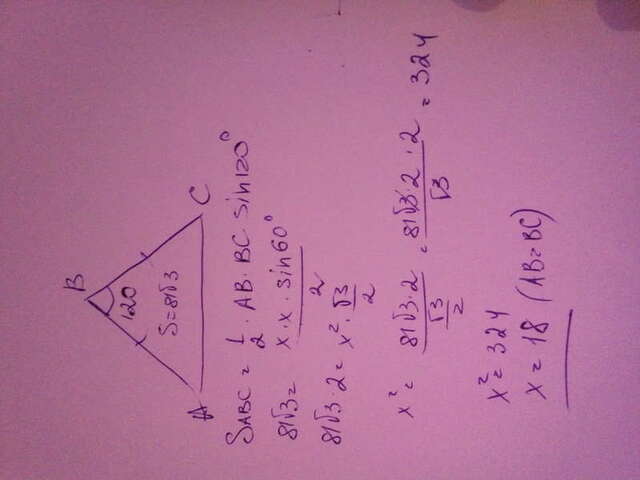 B
120
S=81√3
A C
SABC = 1/2 · AB · BC · sin120°
81√3 = x·x·sin60°/2
81√3·2 = x²·√3/2
x² = 81√3·2/(√3/2) = 81√3·2·2/√3 = 324
x² = 324
x = 18 (AB=BC)